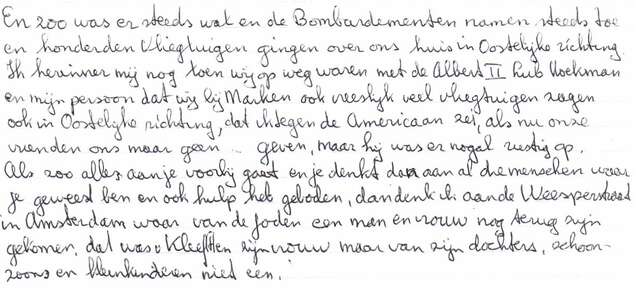 En zoo was er steeds wat en de Bombardementen namen steeds toe
en honderden vliegtuigen gingen over ons huis in Oostelijke richting.
Ik herinner mij nog toen wij op weg waren met de Albert II Lub Hoekman
en mijn persoon dat wij bij Marken ook vreeslyk veel vliegtuigen zagen
ook in Oostelijke richting, dat ik tegen de Americaan zei, als nu onze
vrienden ons maar geen .. geven, maar hij was er nogal rustig op.
Als zoo alles aan je voorbij gaat en je denkt dan aan al die menschen waar
je geweest ben en ook hulp het geboden, dan denk ik aan de Weesperstraat
in Amsterdam waar van de Joden een man en vrouw nog terug zijn
gekomen, dat was v Kleeff en zijn vrouw maar van zijn dochters, schoon-
zoons en kleinkinderen niet een.